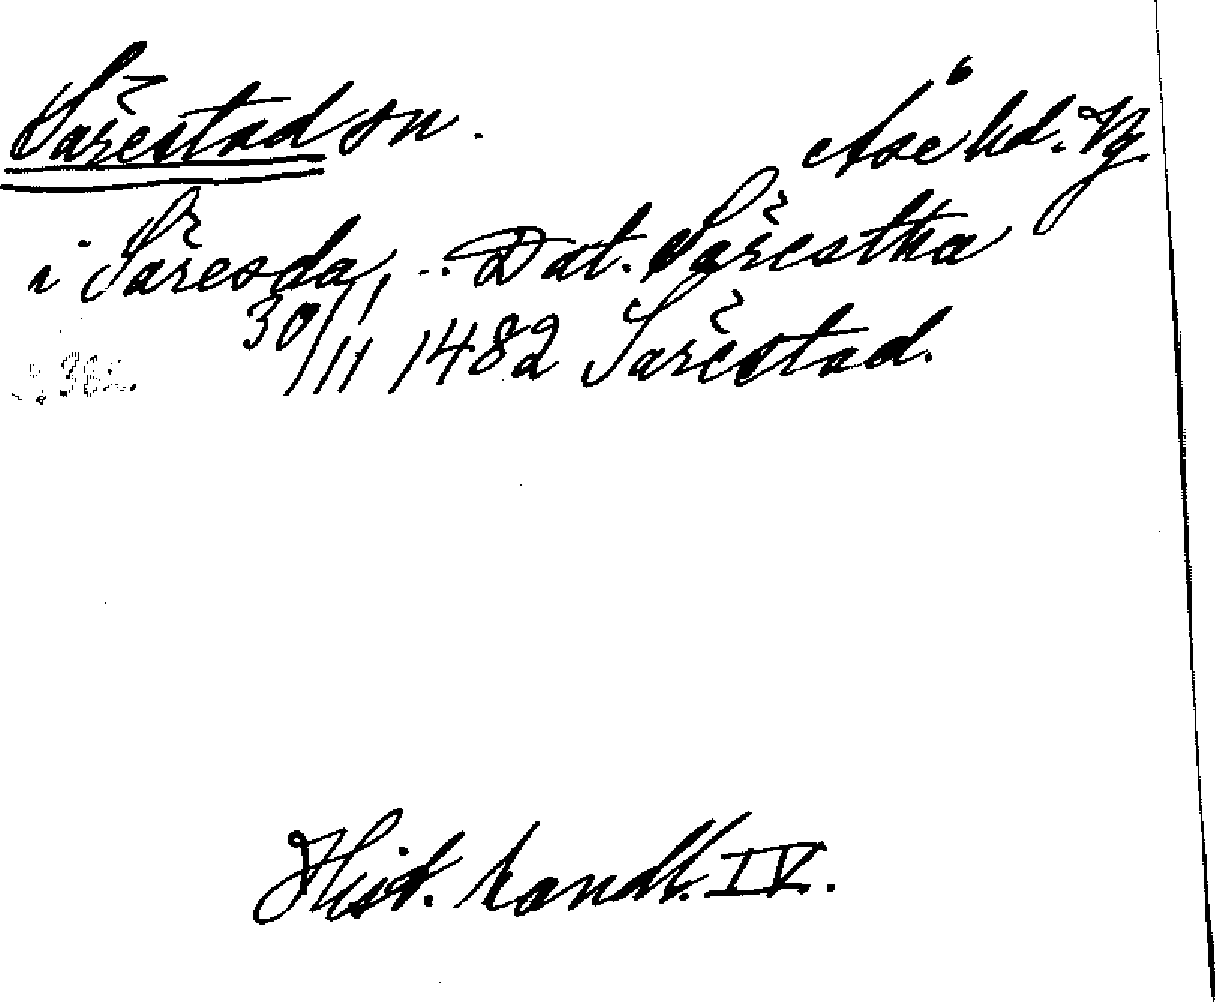 Sårestad sn. Åse hd. Vg
i Såresda, ... Dat. Sårestha
30/11 1482 Sårestad.
Hist. handl. IV.